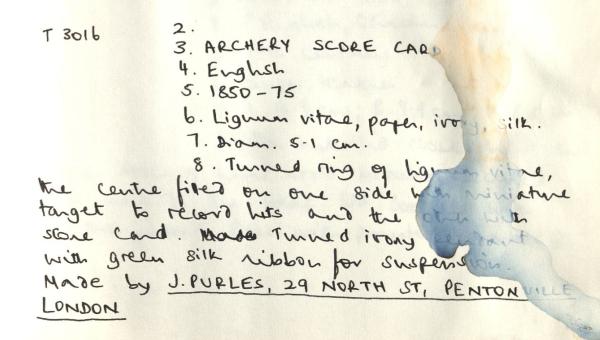 T 3016 2.
3. ARCHERY SCORE CARD
4. English
5. 1850-75
6. Lignum vitae, paper, ivory, silk.
7. Diam. 5.1 cm.
8. Turned ring of lignum vitae,
the centre fitted on one side with miniature
target to record hits and the other with
score card. Turned ivory pendant
with green silk ribbon for suspension.
Made by J. PURLES, 29 NORTH ST, PENTONVILLE
LONDON